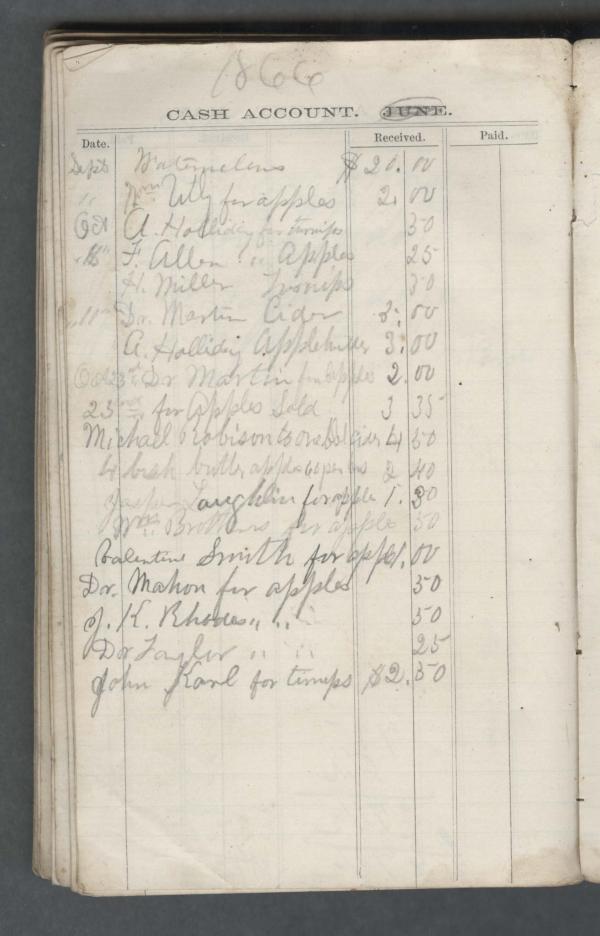 1866
CASH ACCOUNT. JUNE.
Date. Received. Paid.
Sept Watermelons $20.00
" Wm Utly for apples 2.00
Oct A. Holliday for turnips 50
" 18" F. Allen " Apples 25
H. Miller Turnips 50
" 11" Dr. Martin Cider 3.00
A. Holliday Applebutter 3.00
Oct 23rd Dr Martin for Apples 2.00
23rd for Apples Sold 3 35
Michael Robison to one Bbl cider 4 50
4 bush butter apples 60 per bus 2 40
Jasper Laughlin for apple 1.30
Brothers for apples 50
Valentine Smith for appl 1.00
Dr. Mahon for apples 50
J. K. Rhodes " " 50
Dr Taylor " " 25
John Karl for turnips $2.50